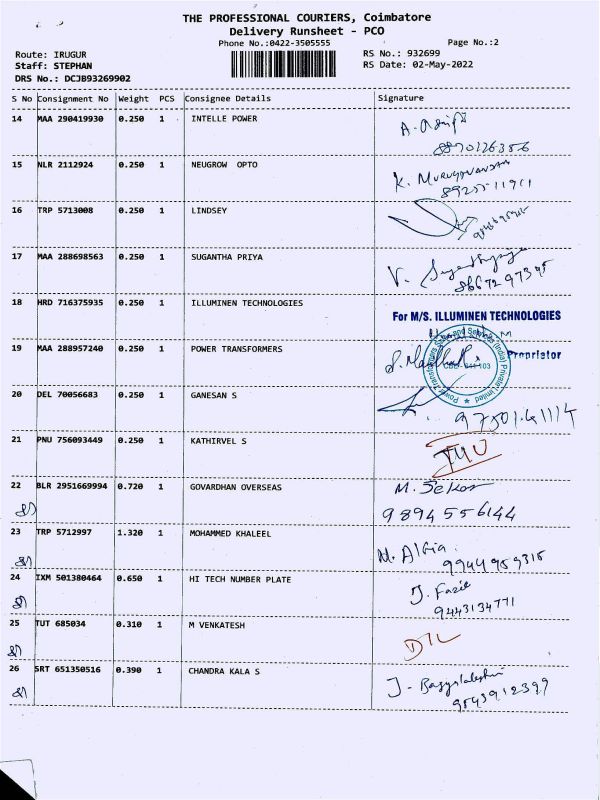 THE PROFESSIONAL COURIERS, Coimbatore
Delivery Runsheet - PCO
Phone No.:0422-3505555 Page No.:2
Route: IRUGUR RS No.: 932699
Staff: STEPHAN RS Date: 02-May-2022
DRS No.: DCJB93269902
S No Consignment No Weight PCS Consignee Details Signature
14 MAA 290419930 0.250 1 INTELLE POWER A.
8870126356
15 NLR 2112924 0.250 1 NEUGROW OPTO K.
16 TRP 5713008 0.250 1 LINDSEY
17 MAA 288698563 0.250 1 SUGANTHA PRIYA V.
8667297395
18 HRD 716375935 0.250 1 ILLUMINEN TECHNOLOGIES
For M/S. ILLUMINEN TECHNOLOGIES
Proprietor
19 MAA 288957240 0.250 1 POWER TRANSFORMERS
20 DEL 70056683 0.250 1 GANESAN S
21 PNU 756093449 0.250 1 KATHIRVEL S
22 BLR 2951669994 0.720 1 GOVARDHAN OVERSEAS M. Sekar
9894556144
23 TRP 5712997 1.320 1 MOHAMMED KHALEEL
9944959315
24 IXM 501380464 0.650 1 HI TECH NUMBER PLATE J. Fazil
9443134771
25 TUT 685034 0.310 1 M VENKATESH DIL
26 SRT 651350516 0.390 1 CHANDRA KALA S
9843912399